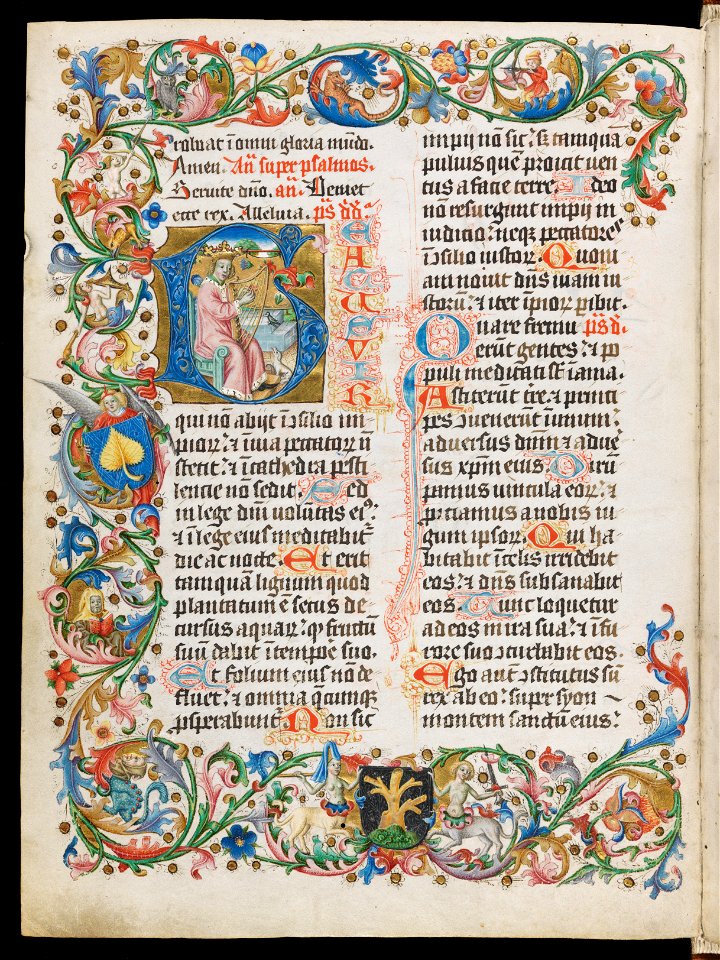 roluat ī omni gloria mūdo.
Amen. Añ super psalmos.
Seruite dño. añ. Deuiet
ette rex. Alleluia. ps̄ dd̄.
B
EATUS VIR
qui nō abijt ī ꝯsilio im⸗
piorꝝ: ⁊ ī uia peccatorꝝ n̄
stetit: ⁊ ī cathedra pesti
lencie nō sedit. Sed
in lege dn̄i volūtas eiꝰ:
⁊ ī lege eius meditabit᷑
die ac nocte. Et erit
tamquā lignum quod
plantatum ē secus de
cursus aquarꝝ: qͦ fructū
suū dabit ī tempoꝛe suo.
Et folium eius nō de
fluet: ⁊ omnia q̄cumqꝫ
ꝓsperabunt᷑. Non sic
impij nō sic: sꝫ tamquā
puluis quē proicit uen
tus a facie terre. Ideo
nō resurgunt impij in
iudicio: neqꝫ peccatores
ī ꝯsilio iustorꝝ. Quoni
am nouit dn̄s uiam iu
storū: ⁊ iter īpiorꝝ ꝑibit.
Quare fremu ps̄ d̄.
erūt gentes: ⁊ po
puli meditati st̄ inania.
Astiterūt t̄re: ⁊ princi
pes ꝯuenerūt in unum:
aduersus dn̄m ⁊ aduer
sus xp̄m eius. Dirū⸗
pamus uincula eorꝝ: ⁊
proiciamus a nobis iu
gum ipsorꝝ. Qui ha
bitabit ī celis irridebit
eos: ⁊ dn̄s subsanabit
eos. Tunc loquetur
ad eos in ira sua: ⁊ ī fu
rore suo ꝯturbabit eos.
Ego aut̄ ꝯstitutus sū
rex ab eo: super syon
montem sanctū eius: